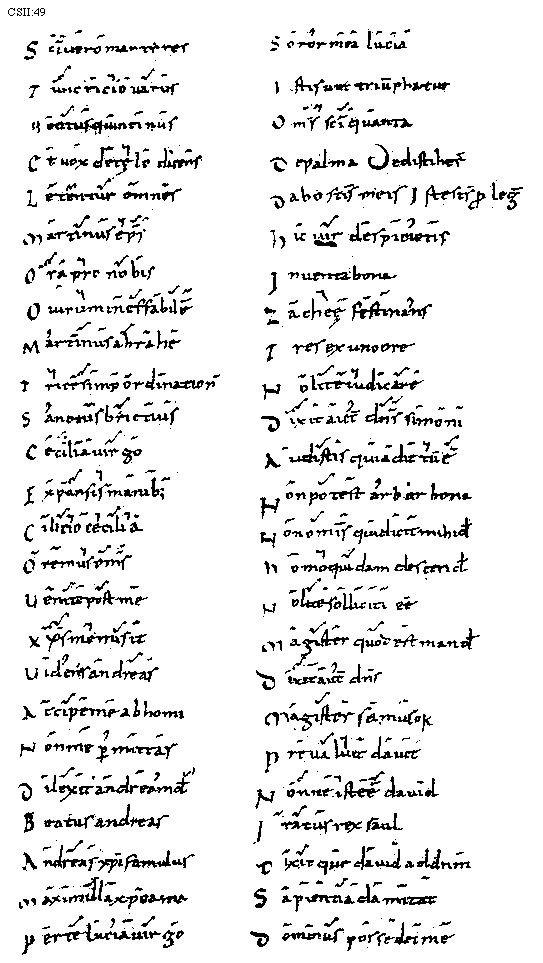 CSII:49
S ci uero martires
T unc ricio varus
B eatus quintinus
E t vox de celo dicens
L etentur omnes
M artinus epi
O ra pro nobis
O uirum ineffabile
M artinus abrahe
T ricesimo ordination
S anctus brictius
C ecilia uirgo
E xpansis manibus
C ilicio cecilia
O remus oms
U enite post me
X ps me misit
U idens andreas
A ccipe me ab homi
N on me permittas
D ilexit andream d
B eatus andreas
A ndreas xpi famulus
M aximilla xpo ama
P er te lucia uirgo
S oror mea lucia
I sti sunt triuphatus
O ms sci quanta
D e palma dedistiher
D abo stis meis I stestp leg
H ic uir despiciens
I nuenta bona
Z ache festinans
T res ex uno ore
N olite iudicare
D ixit aut dns simoni
A udistis quia dictu e
N on potest arbor bona
N on omis qui dicit mihi d
H omo quidam descend
N olite solliciti ee
M agister quod est mand
D ixit aut dns
M agister scimus qr
P reualuit dauit
N onne iste e dauid
I ratus rex saul
D ixitque dauid ad dnm
S apientia clamitat
D ominus possedit me